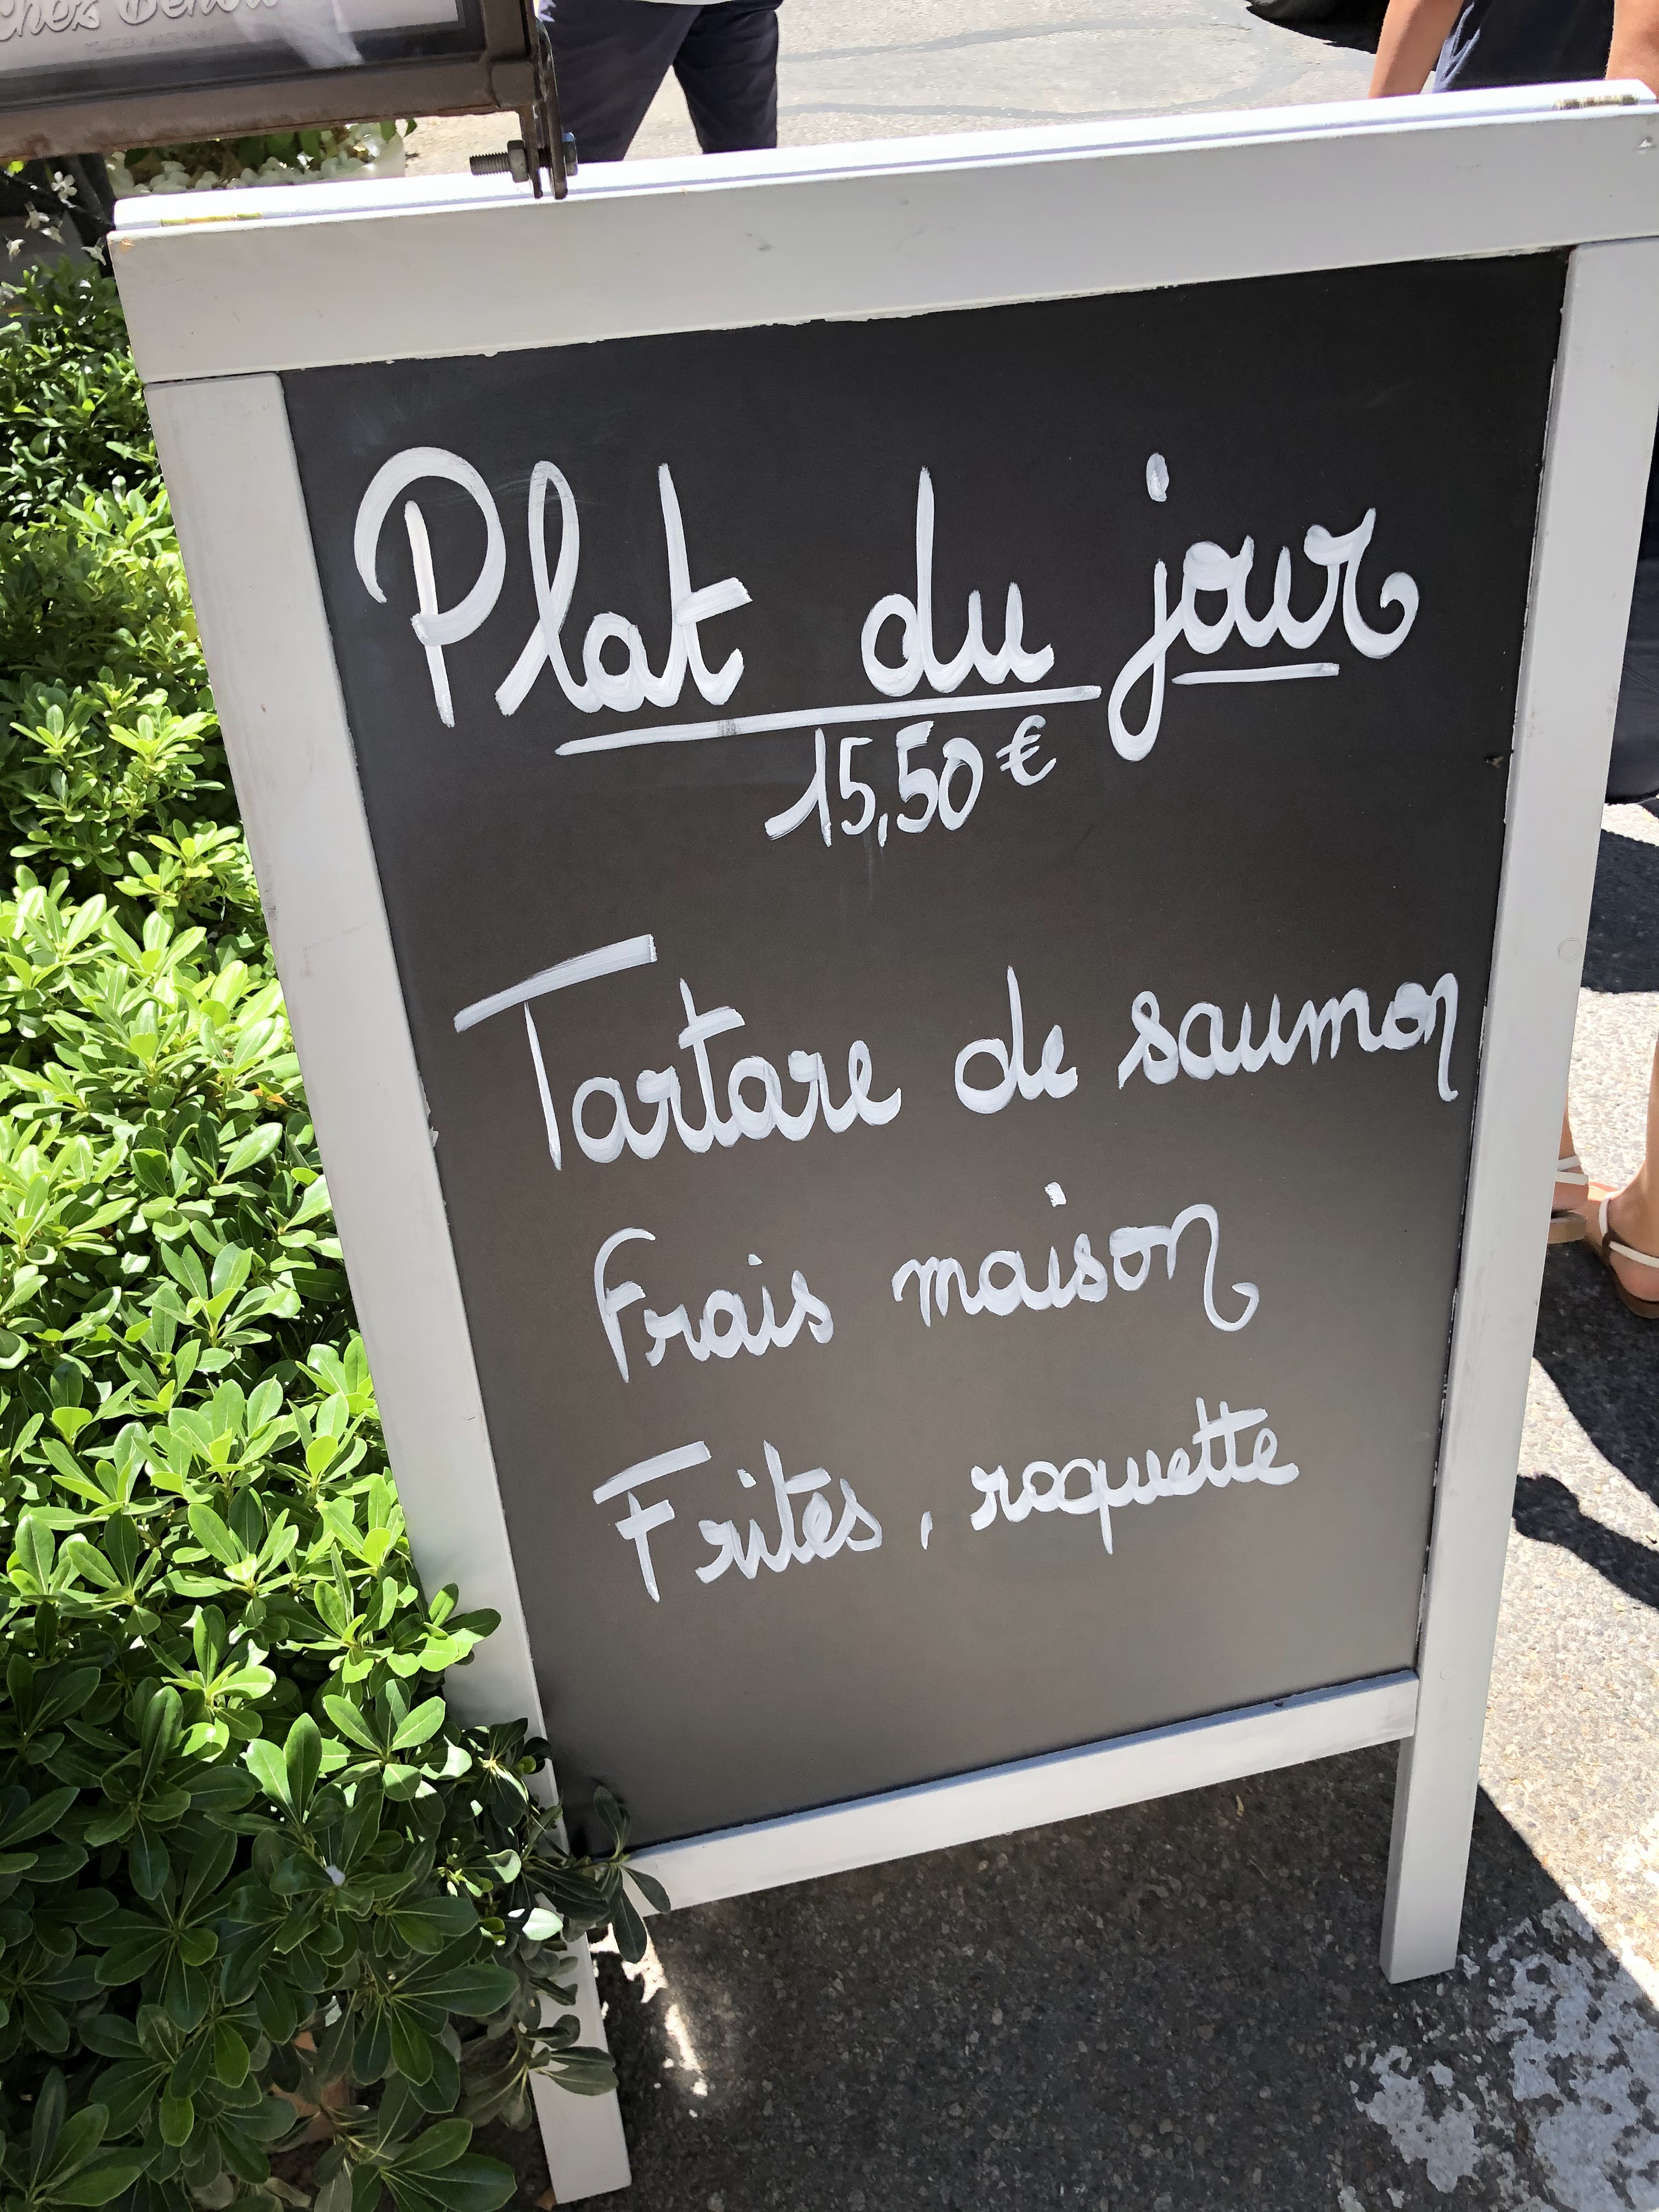 Chez
Plat du jour
15,50 €
Tartare de saumon
Frais maison
Frites, roquette